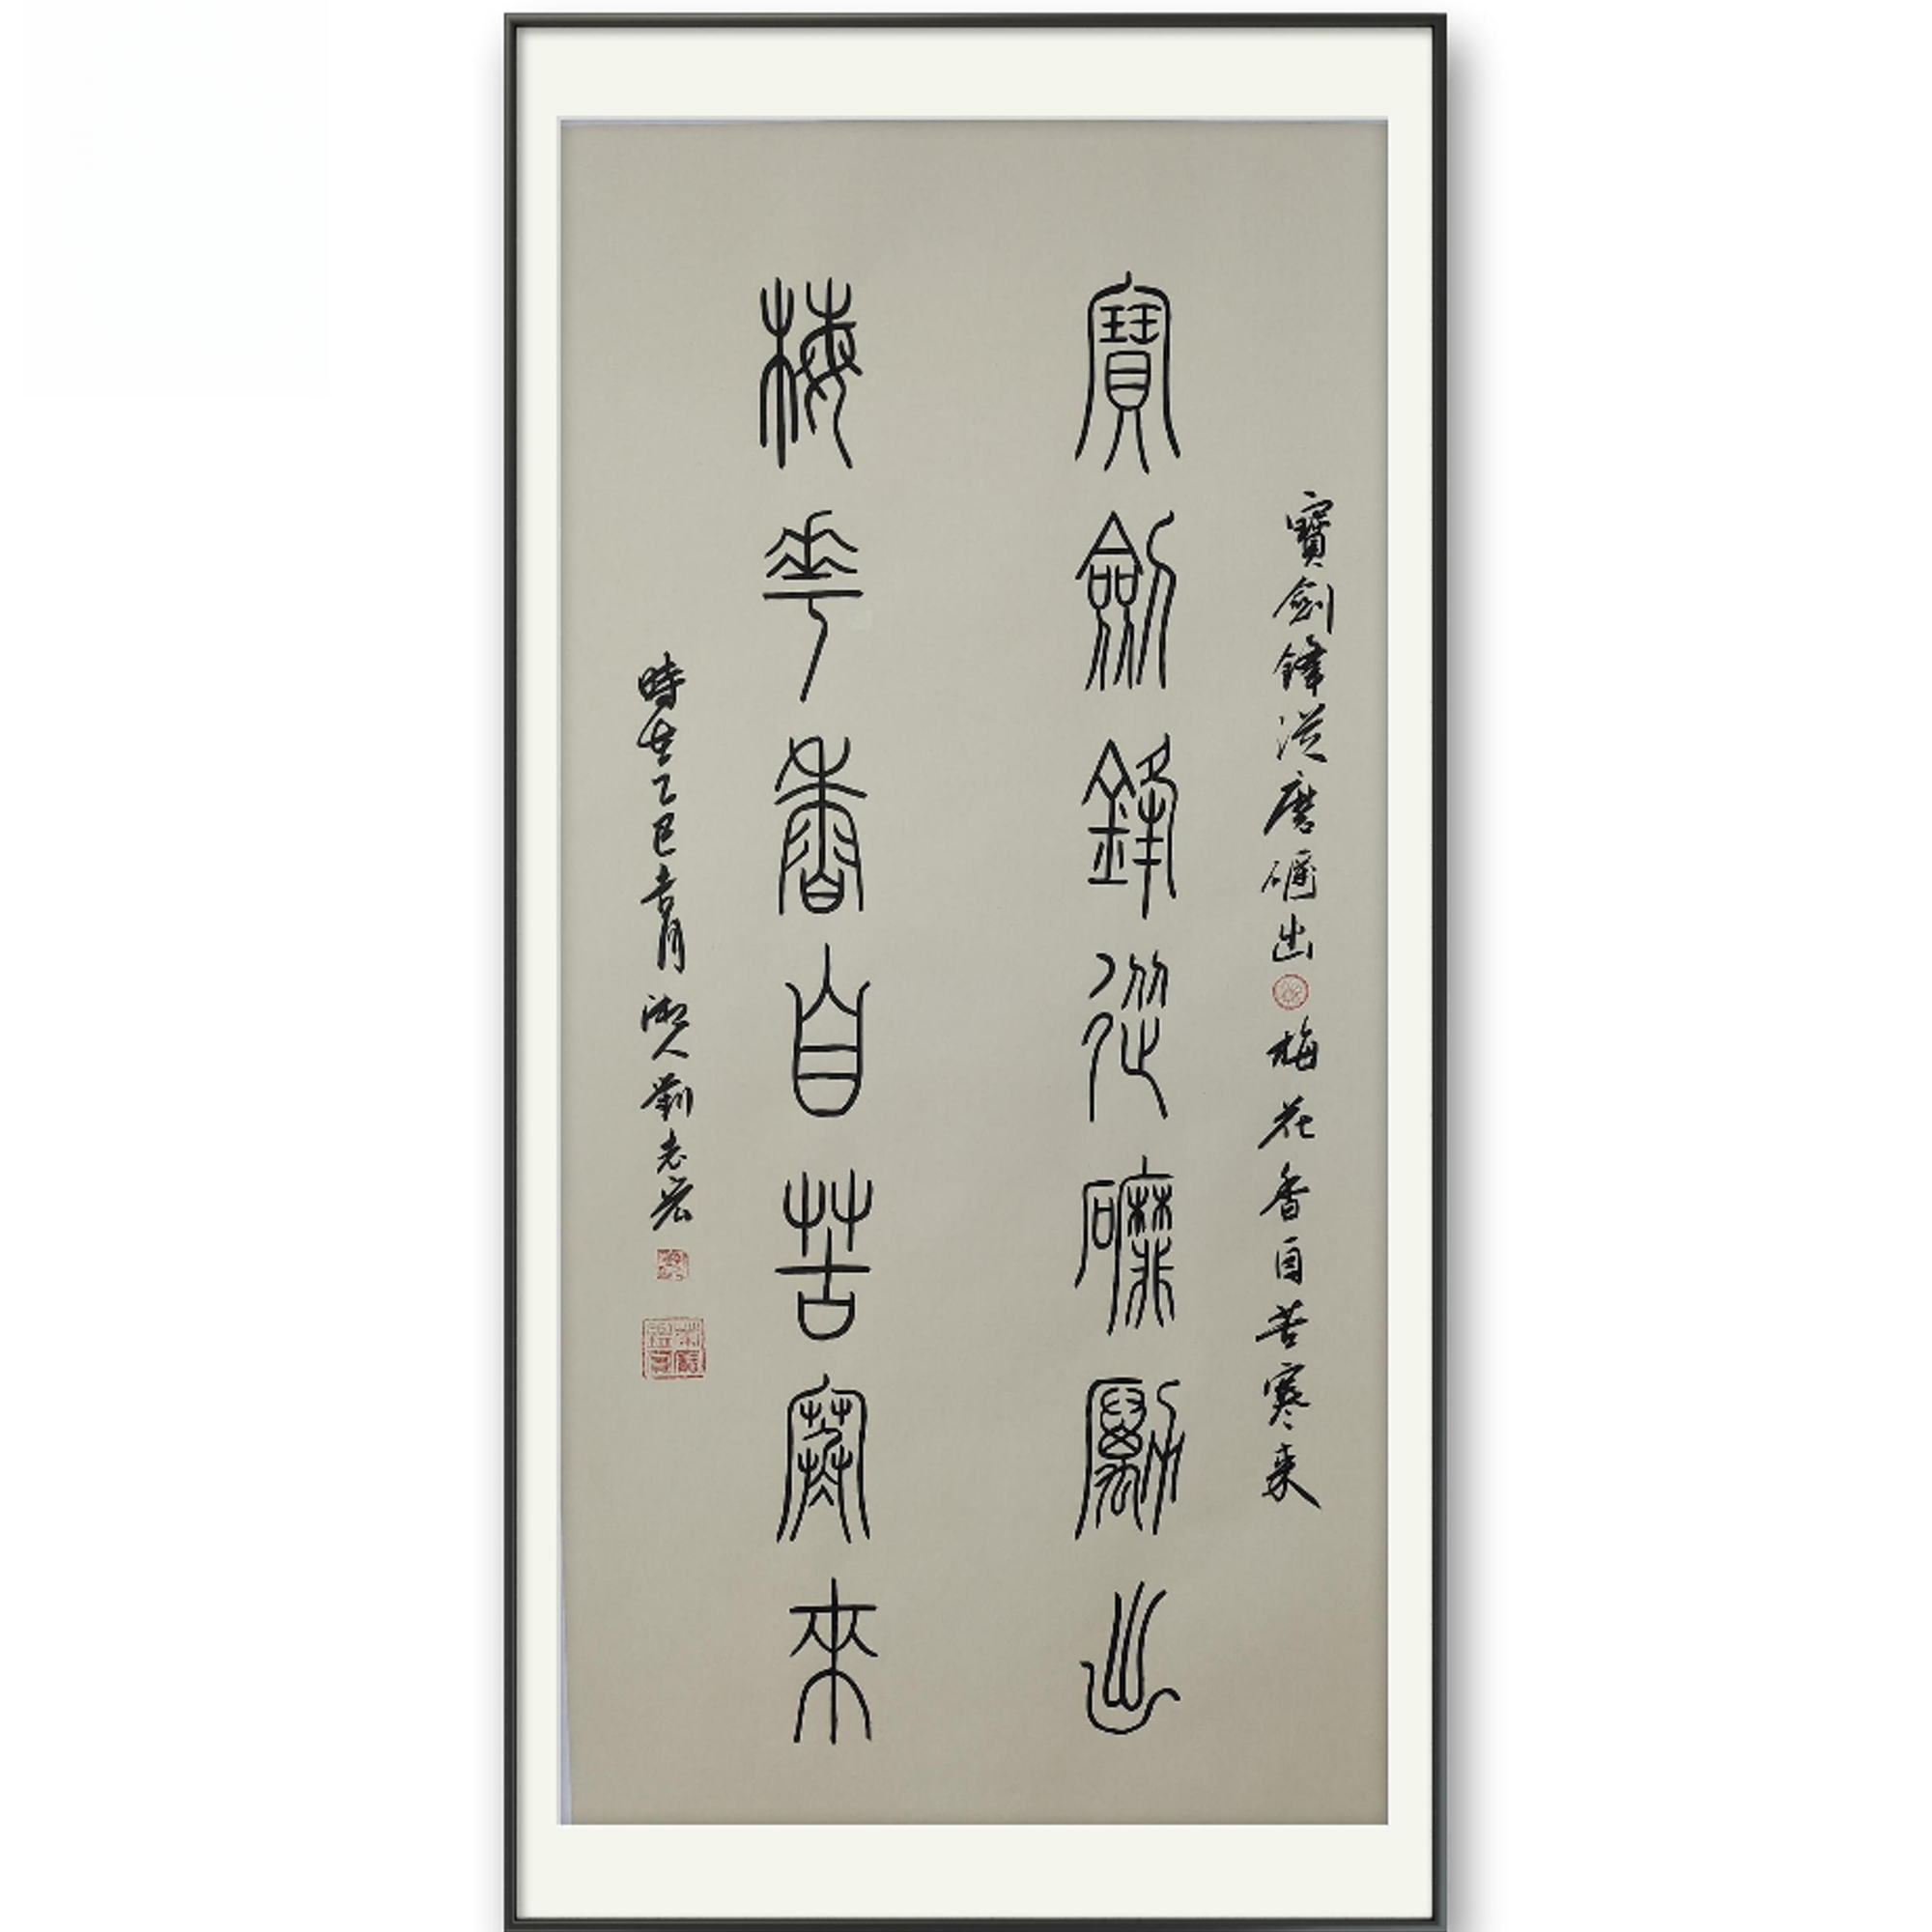 寶劍鋒從磨礪出梅花香自苦寒來
寶劍鋒從磨勵出
梅花香自苦寒來
時在乙巳吉月湘人劉志宏